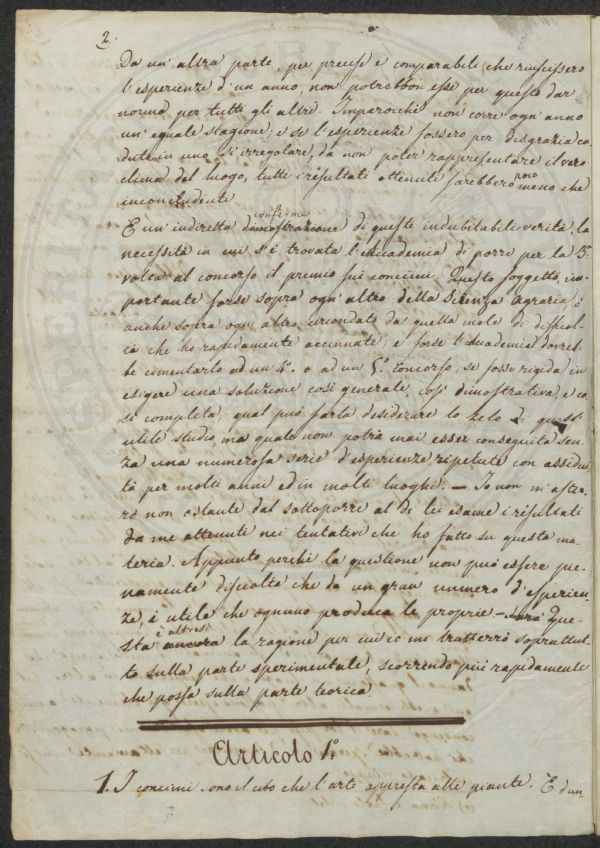 2.
Da un' altra parte, per precise e comparabili che riuscissero
l'esperienze d'un anno, non potrebbon esse per questo dar
norma per tutti gli altri. Imperocchè non corre ogn'anno
un' eguale stagione; e se l'esperienze fossero per disgrazia ca
dute in uno sì irregolare, da non poter rappresentare il vero
clima del luogo, tutti i resultati ottenuti sarebbero poco meno che
inconcludenti.
È un' indiretta dimostrazione conferma di queste indubitabili verità, la
necessità in cui s'è trovata l'accademia di porre per la 3.a
volta al concorso il premio sui concimi. Questo soggetto, im-
portante forse sopra ogn' altro della Scienza Agraria, è
anche sopra ogni altro circondato da quella mole di difficol
tà che ho rapidamente accennate; e forse l'accademia dovreb
be cimentarlo ad un 4.o o ad un 5.o concorso, se fosse rigida in
esigere una soluzione così generale, così dimostrativa, e co
sì completa, qual può farla desiderare lo zelo di quest'
utile studio, ma quale non potrà mai esser conseguita sen
za una numerosa serie d'esperienze ripetute con assidui
tà per molti anni ed in molti luoghi. — Io non m'aster
rò non ostante dal sottoporre al di lei esame i risultati
da me ottenuti nei tentativi che ho fatto su questa ma
teria. Appunto perchè la questione non può essere pie
namente disciolta che da un gran numero d'esperien
ze, è utile che ognuno produca le proprie — sarà Que-
sta ancora è altresì la ragione per cui io mi tratterrò soprattut
to sulla parte sperimentale, scorrendo più rapidamente
che possa sulla parte teorica.
Articolo 1.o
1. I concimi sono il cibo che l'arte appresta alle piante. È dun-